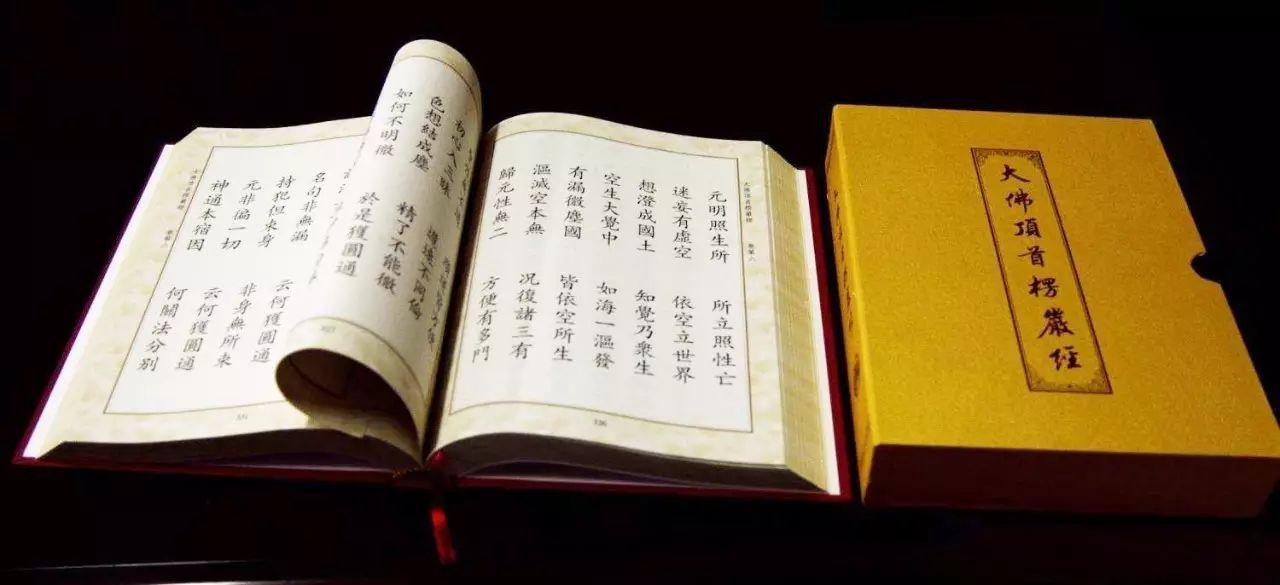 大佛頂首楞嚴經 卷第六
元明照生所 所立照性亡
迷妄有虛空 依空立世界
想澄成國土 知覺乃衆生
空生大覺中 如海一漚發
有漏微塵國 皆依空所生
漚滅空本無 況復諸三有
歸元性無二 方便有多門
初心入三昧 遲速不同倫
色想結成塵 精了不能徹
如何不明徹 於是獲圓通
名句非無漏 云何獲圓通
持犯但束身 非身無所束
元非徧一切 云何獲圓通
神通本宿因 何關法分別
大佛頂首楞嚴經 卷第六
大佛頂首楞嚴經